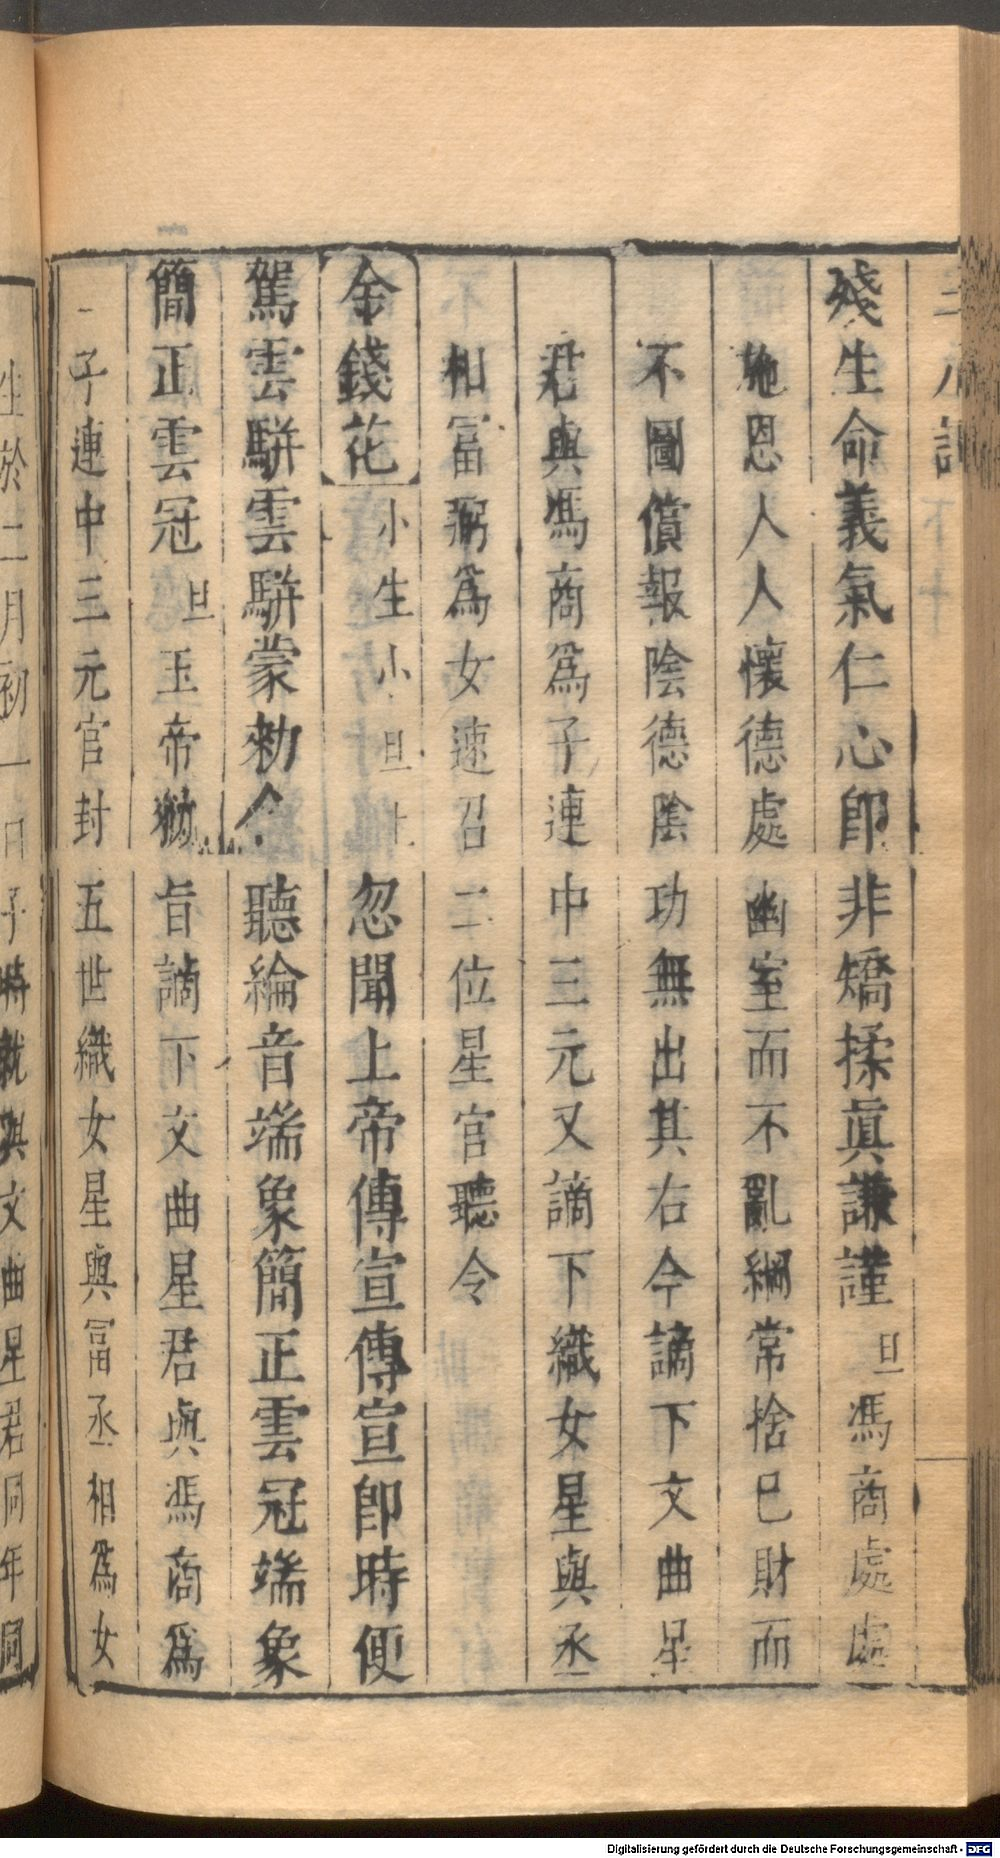 三元記 下 十
殘生命義氣仁心卽非矯揉眞謙謹 旦 馮商處處
施恩人人懷德處幽室而不亂綱常捨己財而
不圖償報陰德陰功無出其右今謫下文曲星
君與馮商爲子連中三元又謫下織女星與丞
相富弼爲女速召二位星官聽令
金錢花 小生小旦上 忽聞上帝傳宣傳宣卽時便
駕雲駢雲駢蒙勑令聽綸音端象簡正雲冠端象
簡正雲冠 旦 玉帝勑旨謫下文曲星君與馮商爲
子連中三元官封五世織女星與富丞相爲女
生於二月初一日子時就與文曲星君同年同
Digitalisierung gefördert durch die Deutsche Forschungsgemeinschaft - DFG